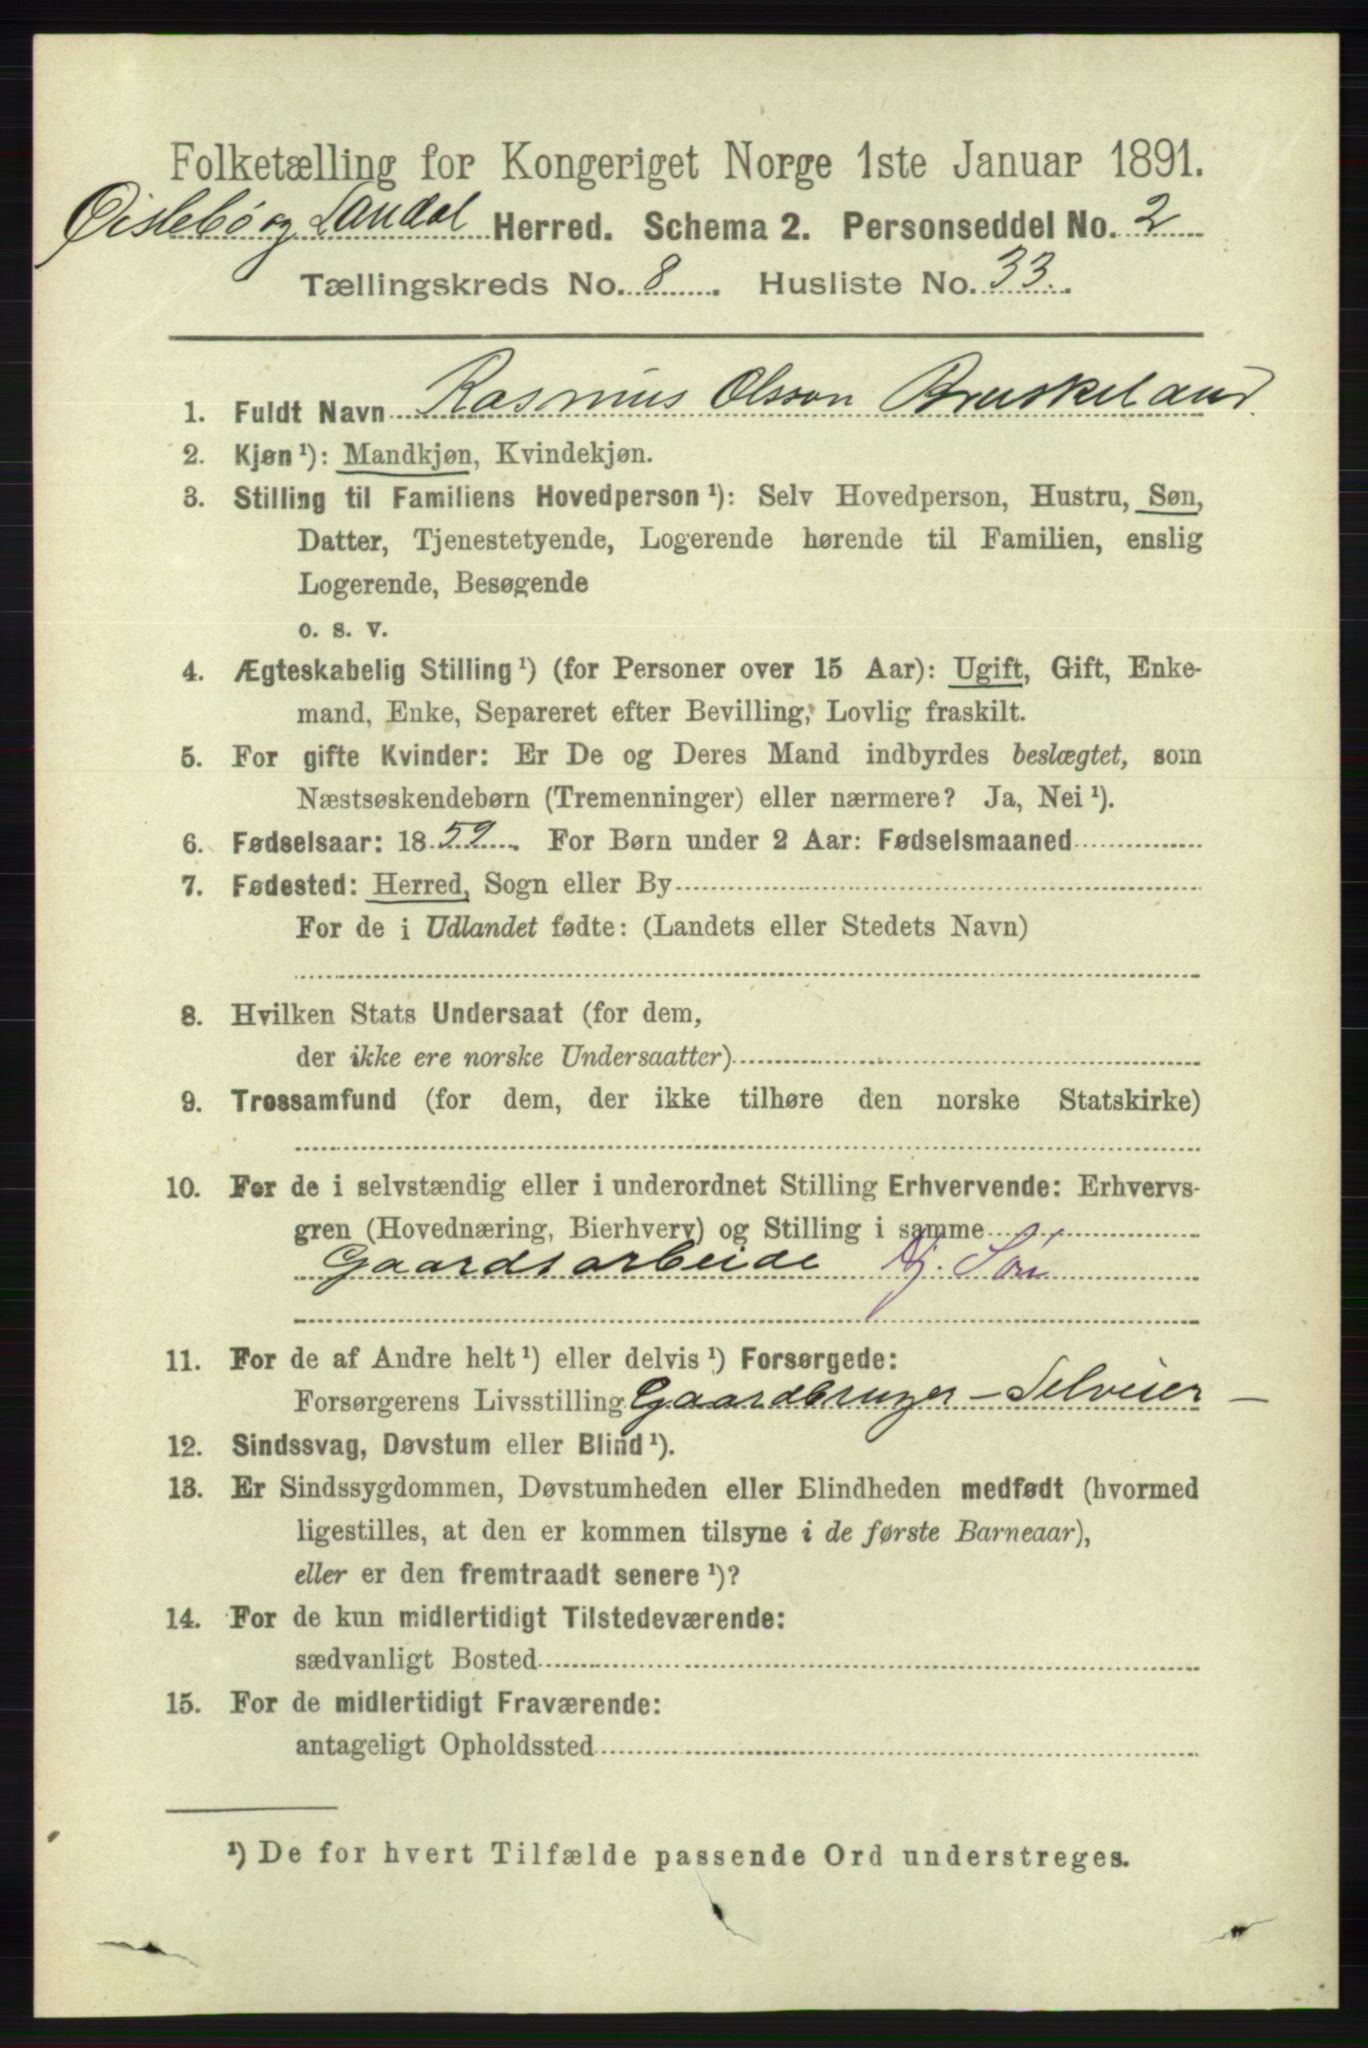 Folketælling for Kongeriget Norge 1ste Januar 1891.
Øislebø og Laudal Herred. Schema 2. Personseddel No. 2
Tællingskreds No. 8. Husliste No. 33.
1. Fuldt Navn Rasmus Olsson Bruskeland.
2. Kjøn ¹): Mandkjøn, Kvindekjøn.
3. Stilling til Familiens Hovedperson ¹): Selv Hovedperson, Hustru, Søn,
Datter, Tjenestetyende, Logerende hørende til Familien, enslig
Logerende, Besøgende
o. s. v.
4. Ægteskabelig Stilling ¹) (for Personer over 15 Aar): Ugift, Gift, Enke-
mand, Enke, Separeret efter Bevilling, Lovlig fraskilt.
5. For gifte Kvinder: Er De og Deres Mand indbyrdes beslægtet, som
Næstsøskendebørn (Tremenninger) eller nærmere? Ja, Nei ¹).
6. Fødselsaar: 1859. For Børn under 2 Aar: Fødselsmaaned
7. Fødested: Herred, Sogn eller By
For de i Udlandet fødte: (Landets eller Stedets Navn)
8. Hvilken Stats Undersaat (for dem,
der ikke ere norske Undersaatter)
9. Trossamfund (for dem, der ikke tilhøre den norske Statskirke)
10. For de i selvstændig eller i underordnet Stilling Erhvervende: Erhvervs-
gren (Hovednæring, Bierhverv) og Stilling i samme
Gaardsarbeide Gj. Søn
11. For de af Andre helt ¹) eller delvis ¹) Forsørgede:
Forsørgerens Livsstilling Gaardbruger – Selveier –
12. Sindssvag, Døvstum eller Blind ¹).
13. Er Sindssygdommen, Døvstumheden eller Blindheden medfødt (hvormed
ligestilles, at den er kommen tilsyne i de første Barneaar),
eller er den fremtraadt senere ¹)?
14. For de kun midlertidigt Tilstedeværende:
sædvanligt Bosted
15. For de midlertidigt Fraværende:
antageligt Opholdssted
¹) De for hvert Tilfælde passende Ord understreges.